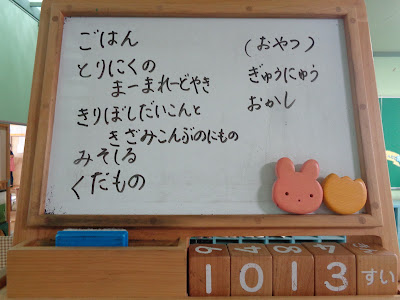 ごはん
とりにくの
まーまれーどやき
きりぼしだいこんと
きざみこんぶのにもの
みそしる
くだもの
(おやつ)
ぎゅうにゅう
おかし
1013すい